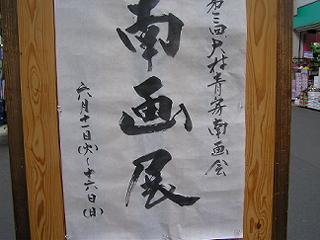 第三回大村青穽南画会
南画展
六月十一日(火)~十六日(日)